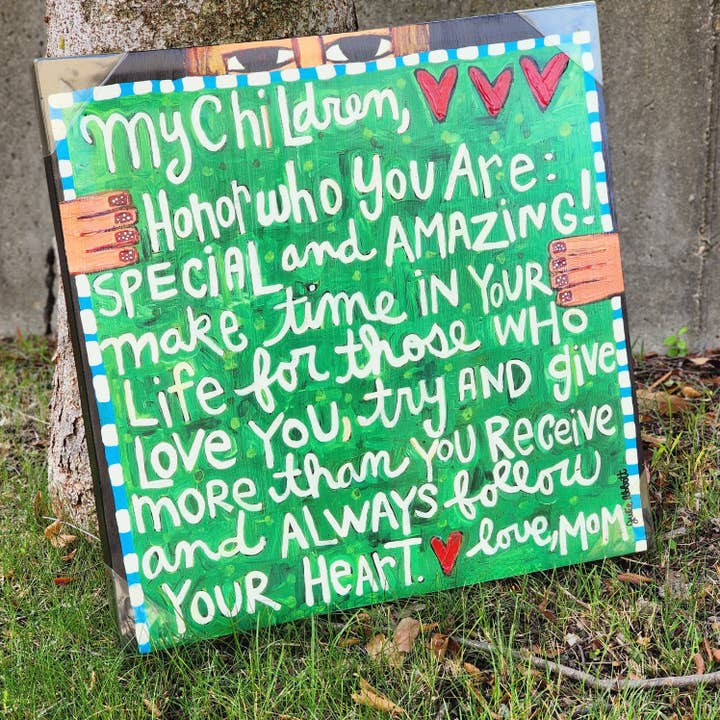 My Children,
Honor who You Are:
SPECIAL and AMAZING!
make time in Your
Life for those WHO
Love You, try AND give
more than You Receive
and ALWAYS follow
YOUR HeArT. love, MOM